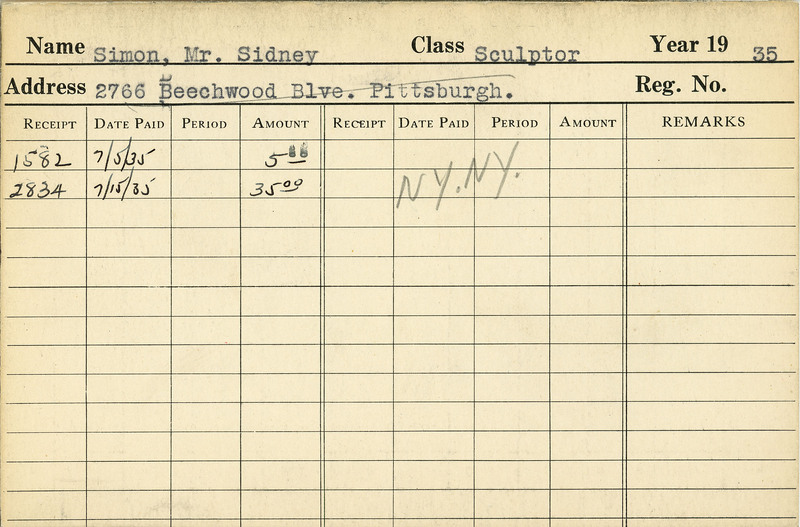 Name Simon, Mr. Sidney Class Sculptor Year 19 35
Address 2766 Beechwood Blve. Pittsburgh. Reg. No.
RECEIPT DATE PAID PERIOD AMOUNT RECEIPT DATE PAID PERIOD AMOUNT REMARKS
1582 7/5/35 5 00
2834 7/15/35 35 00 N.Y. N.Y.